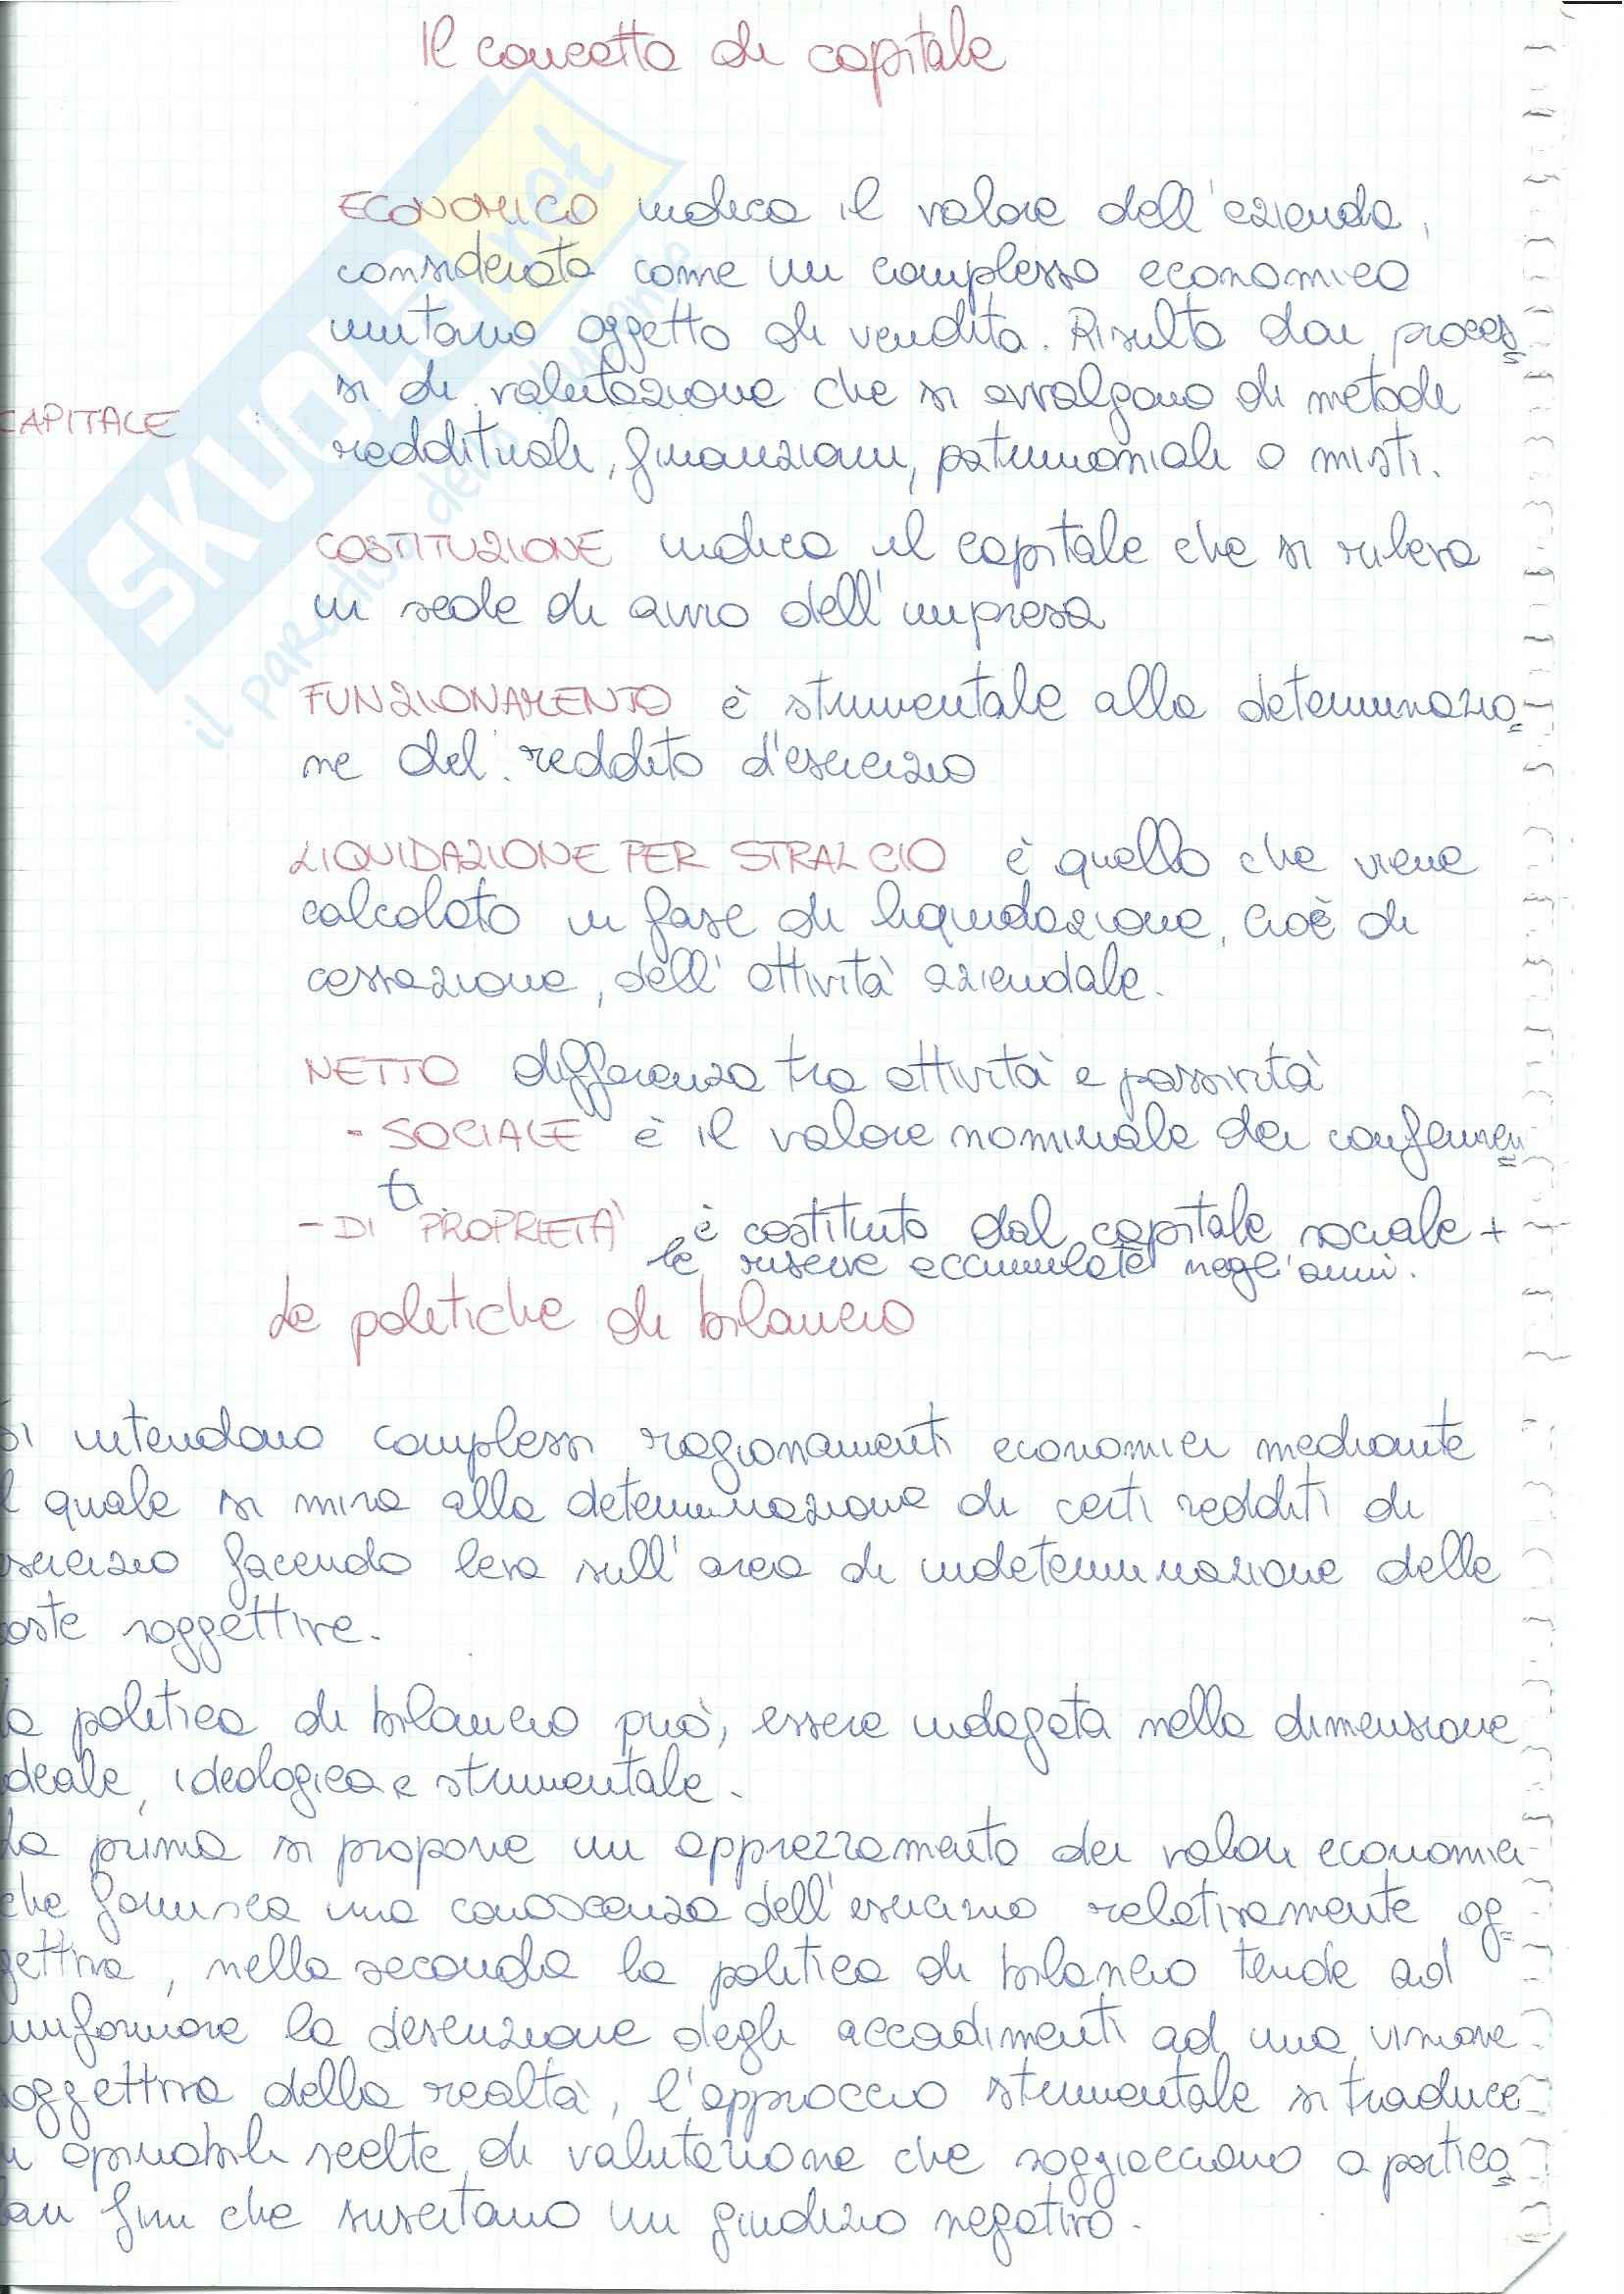 Il concetto di capitale
ECONOMICO indica il valore dell'azienda,
considerata come un complesso economico
unitario oggetto di vendita. Risulta dai proces
si di valutazione che si avvalgono di metodi
CAPITALE
reddituali, finanziari, patrimoniali o misti.
COSTITUZIONE indica il capitale che si rileva
in sede di avvio dell'impresa
FUNZIONAMENTO è strumentale alla determinazio
ne del reddito d'esercizio
LIQUIDAZIONE PER STRALCIO è quello che viene
calcolato in fase di liquidazione, cioè di
cessazione, dell'attività aziendale.
NETTO differenza tra attività e passività
- SOCIALE è il valore nominale dei conferimen
ti
- DI PROPRIETÀ è costituito dal capitale sociale +
le riserve accumulate negli anni.
Le politiche di bilancio
Si intendono complessi ragionamenti economici mediante
l quale si mira alla determinazione di certi redditi di
sercizio facendo leva sull'area di indeterminazione delle
oste soggettive.
la politica di bilancio può, essere indagata nella dimensione
deale, ideologica e strumentale.
La prima si propone un apprezzamento dei valori economici
che fornisca una conoscenza dell'esercizio relativamente og
gettiva, nella seconda la politica di bilancio tende ad
uniformare la descrizione degli accadimenti ad una visione
oggettiva della realtà, l'approccio strumentale si traduce
n opinabili scelte di valutazione che soggiacciono a partico
lari fini che suscitano un giudizio negativo.
SKUOLA.net
il paradiso dello studente